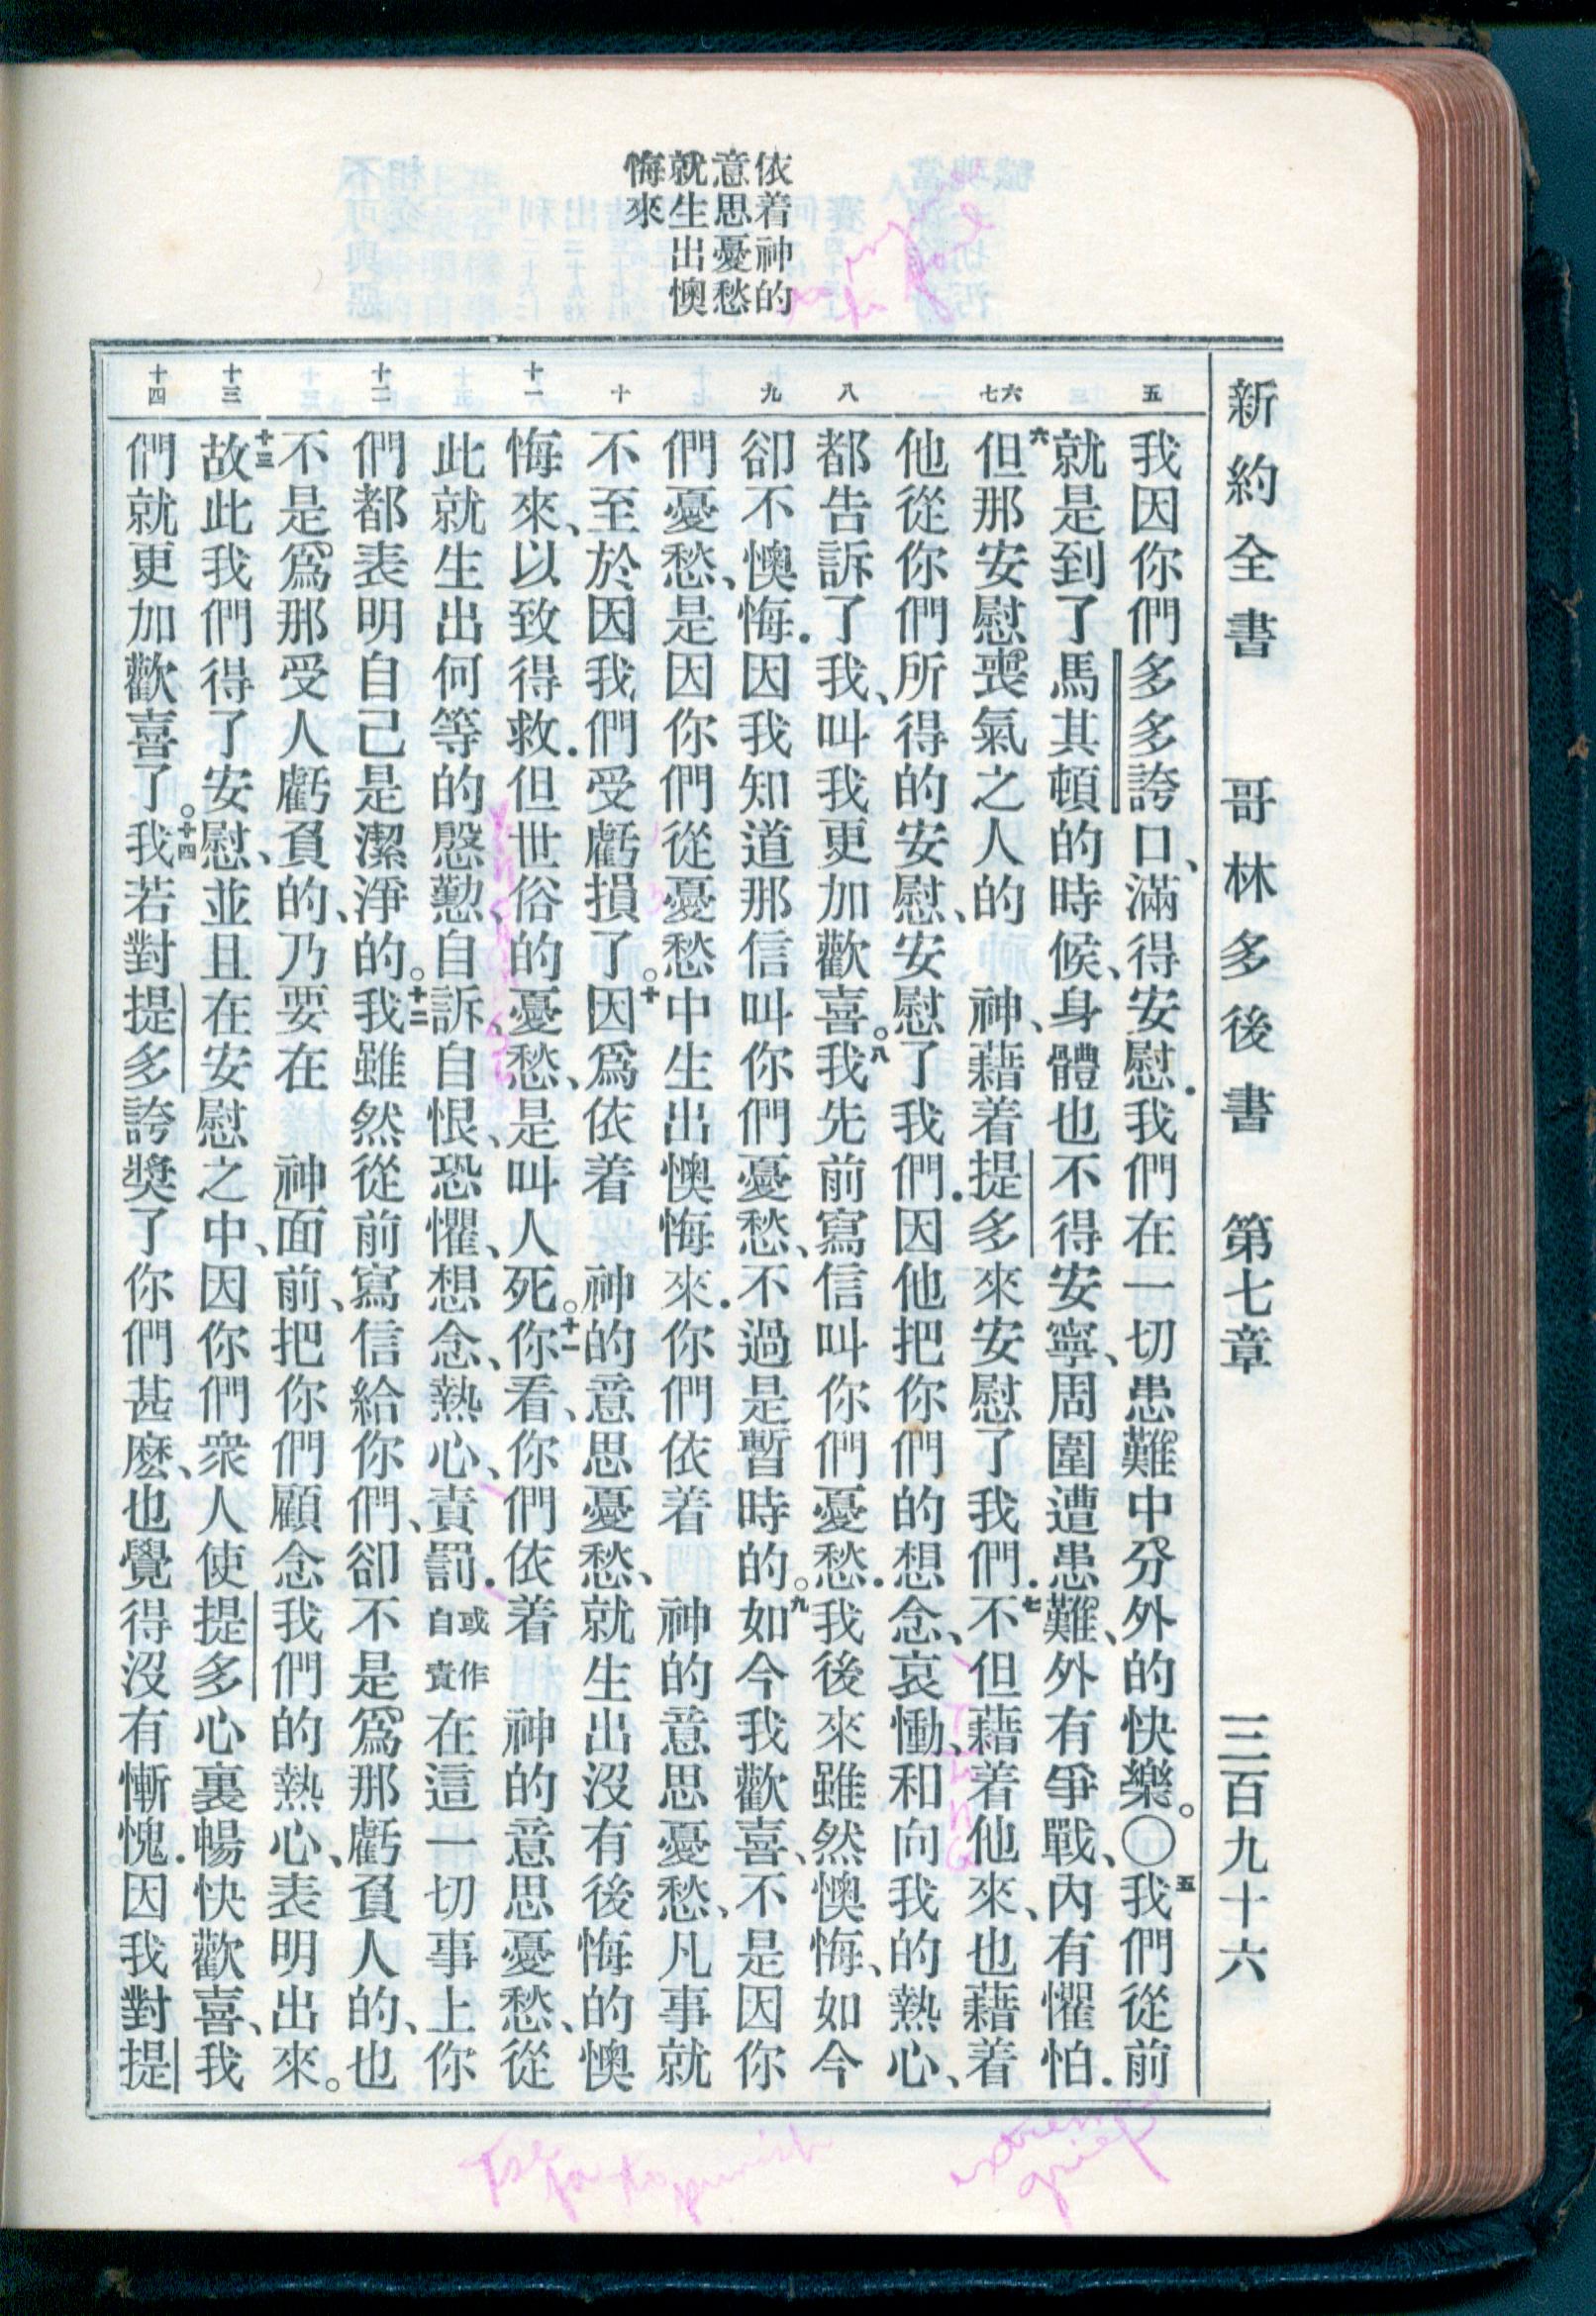 依着神的
意思憂愁
就生出懊
悔來
新約全書 哥林多後書 第七章 三百九十六
五
六
七
八
九
十
十一
十二
十三
十四
我因你們多多誇口、滿得安慰．我們在一切患難中分外的快樂。〇五我們從前
就是到了馬其頓的時候、身體也不得安寧、周圍遭患難、外有爭戰、內有懼怕．
六但那安慰喪氣之人的 神、藉着提多來安慰了我們．七不但藉着他來、也藉着
他從你們所得的安慰、安慰了我們．因他把你們的想念、哀慟、和向我的熱心、
都告訴了我、叫我更加歡喜。八我先前寫信叫你們憂愁．我後來雖然懊悔、如今
卻不懊悔．因我知道那信叫你們憂愁、不過是暫時的。九如今我歡喜、不是因你
們憂愁、是因你們從憂愁中生出懊悔來．你們依着 神的意思憂愁、凡事就
不至於因我們受虧損了。十因爲依着 神的意思憂愁、就生出沒有後悔的懊
悔來、以致得救．但世俗的憂愁、是叫人死。十一你看、你們依着 神的意思憂愁、從
此就生出何等的慇懃、自訴、自恨、恐懼、想念、熱心、責罰．或作自責在這一切事上你
們都表明自己是潔淨的。十二我雖然從前寫信給你們、卻不是爲那虧負人的、也
不是爲那受人虧負的、乃要在 神面前、把你們顧念我們的熱心、表明出來。
十三故此我們得了安慰、並且在安慰之中、因你們衆人使提多心裏暢快歡喜、我
們就更加歡喜了。十四我若對提多誇獎了你們甚麽、也覺得沒有慚愧．因我對提
extreme
grief
punish